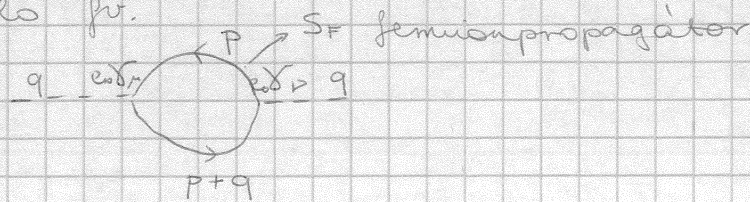 lo fv.
p S_F fermionpropagátor
q e₀γ_μ e₀γ_ν q
p+q